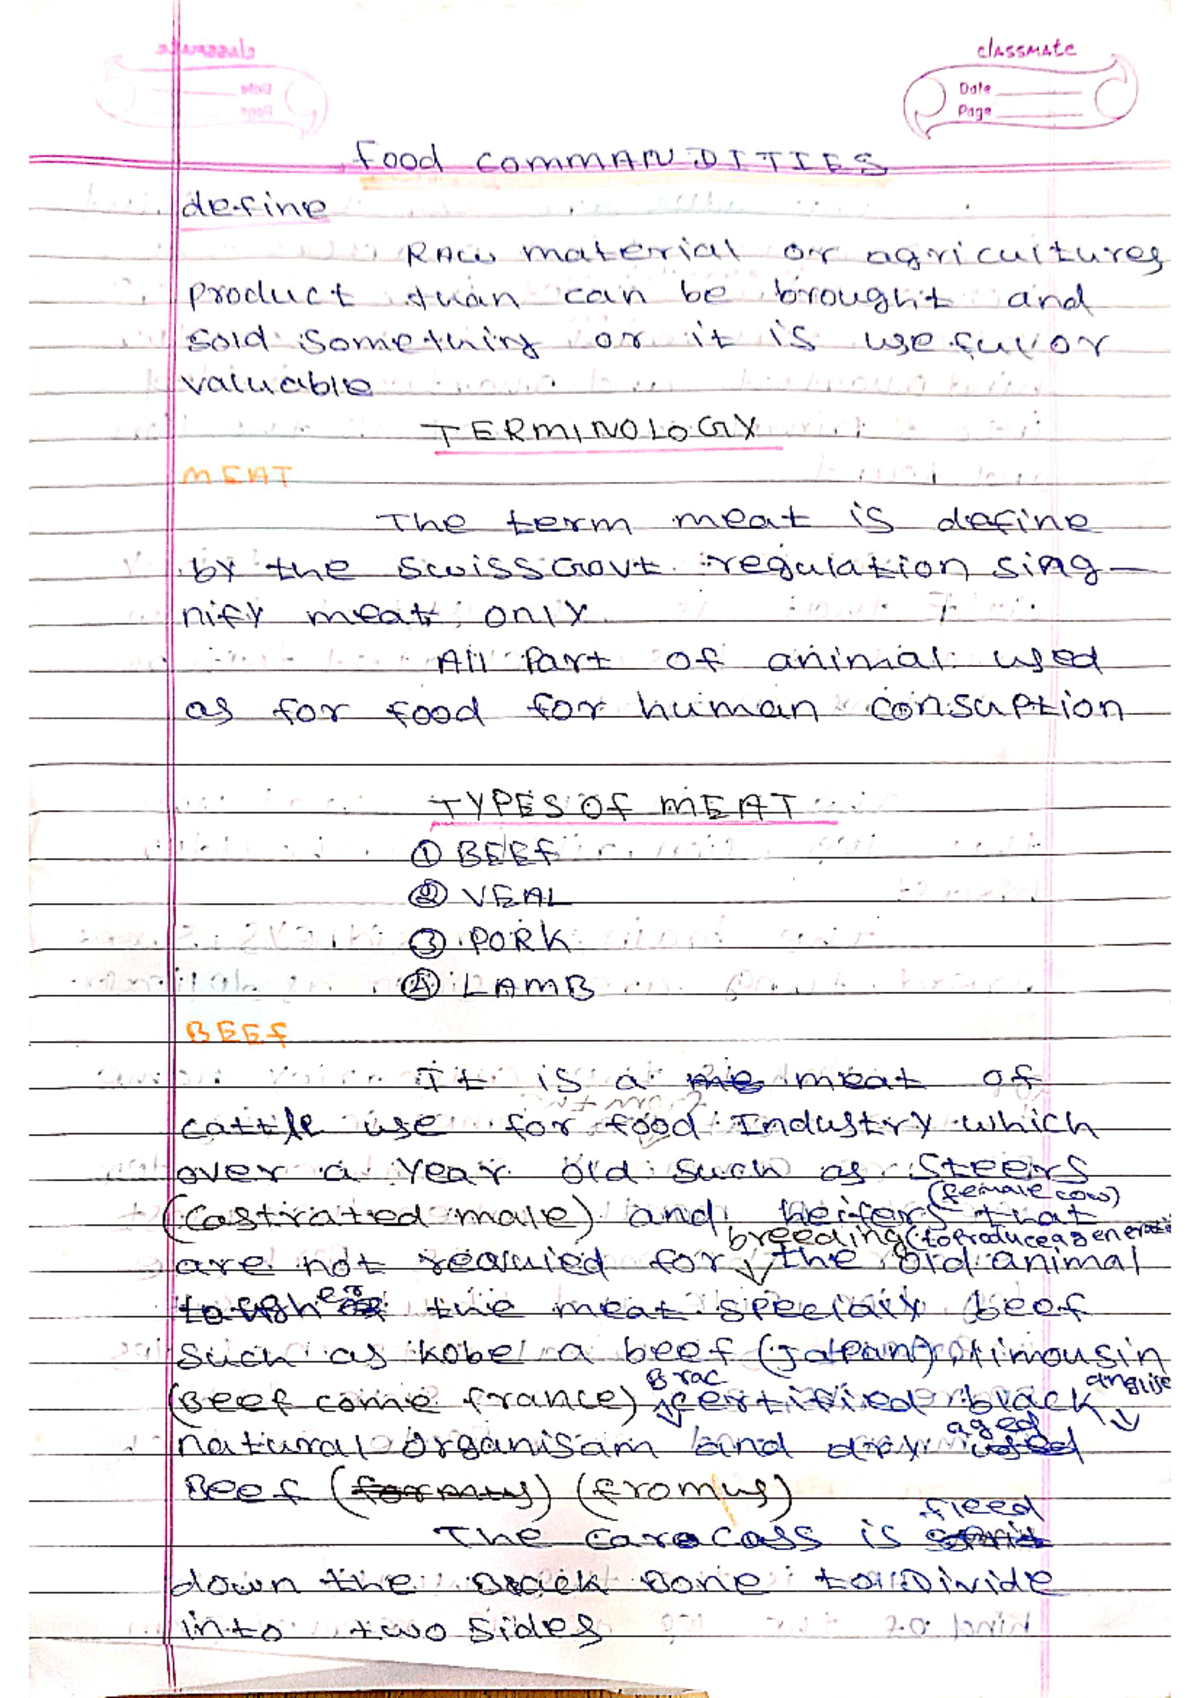 classmate
Date
Page
food COMMANDITIES
define
RAw material or agricultures
product than can be brought and
sold something or it is useful or
valuable
TERMINOLOGY
MEAT
The term meat is define
by the swiss Govt. regulation sing-
nify meat only.
All Part of animal used
as for food for human consuption
TYPES Of MEAT
① BEEf
② VEAL
③ PORK
④ LAMB
BEEf
It is a meat of
cattle use for food Industry which
over a year old such as Steers
(female cow)
(castrated male) and heifers that
breeding (to Produce a generati
are not reauied for the old animal
the meat specialy beef
such as kobe a beef (Japan), limousin
Brac anglise
(Beef come france) certified black
aged
natural organisam and dry
Beef (fromus)
fleed
The carcass is
down the back bone to Divide
into two sides